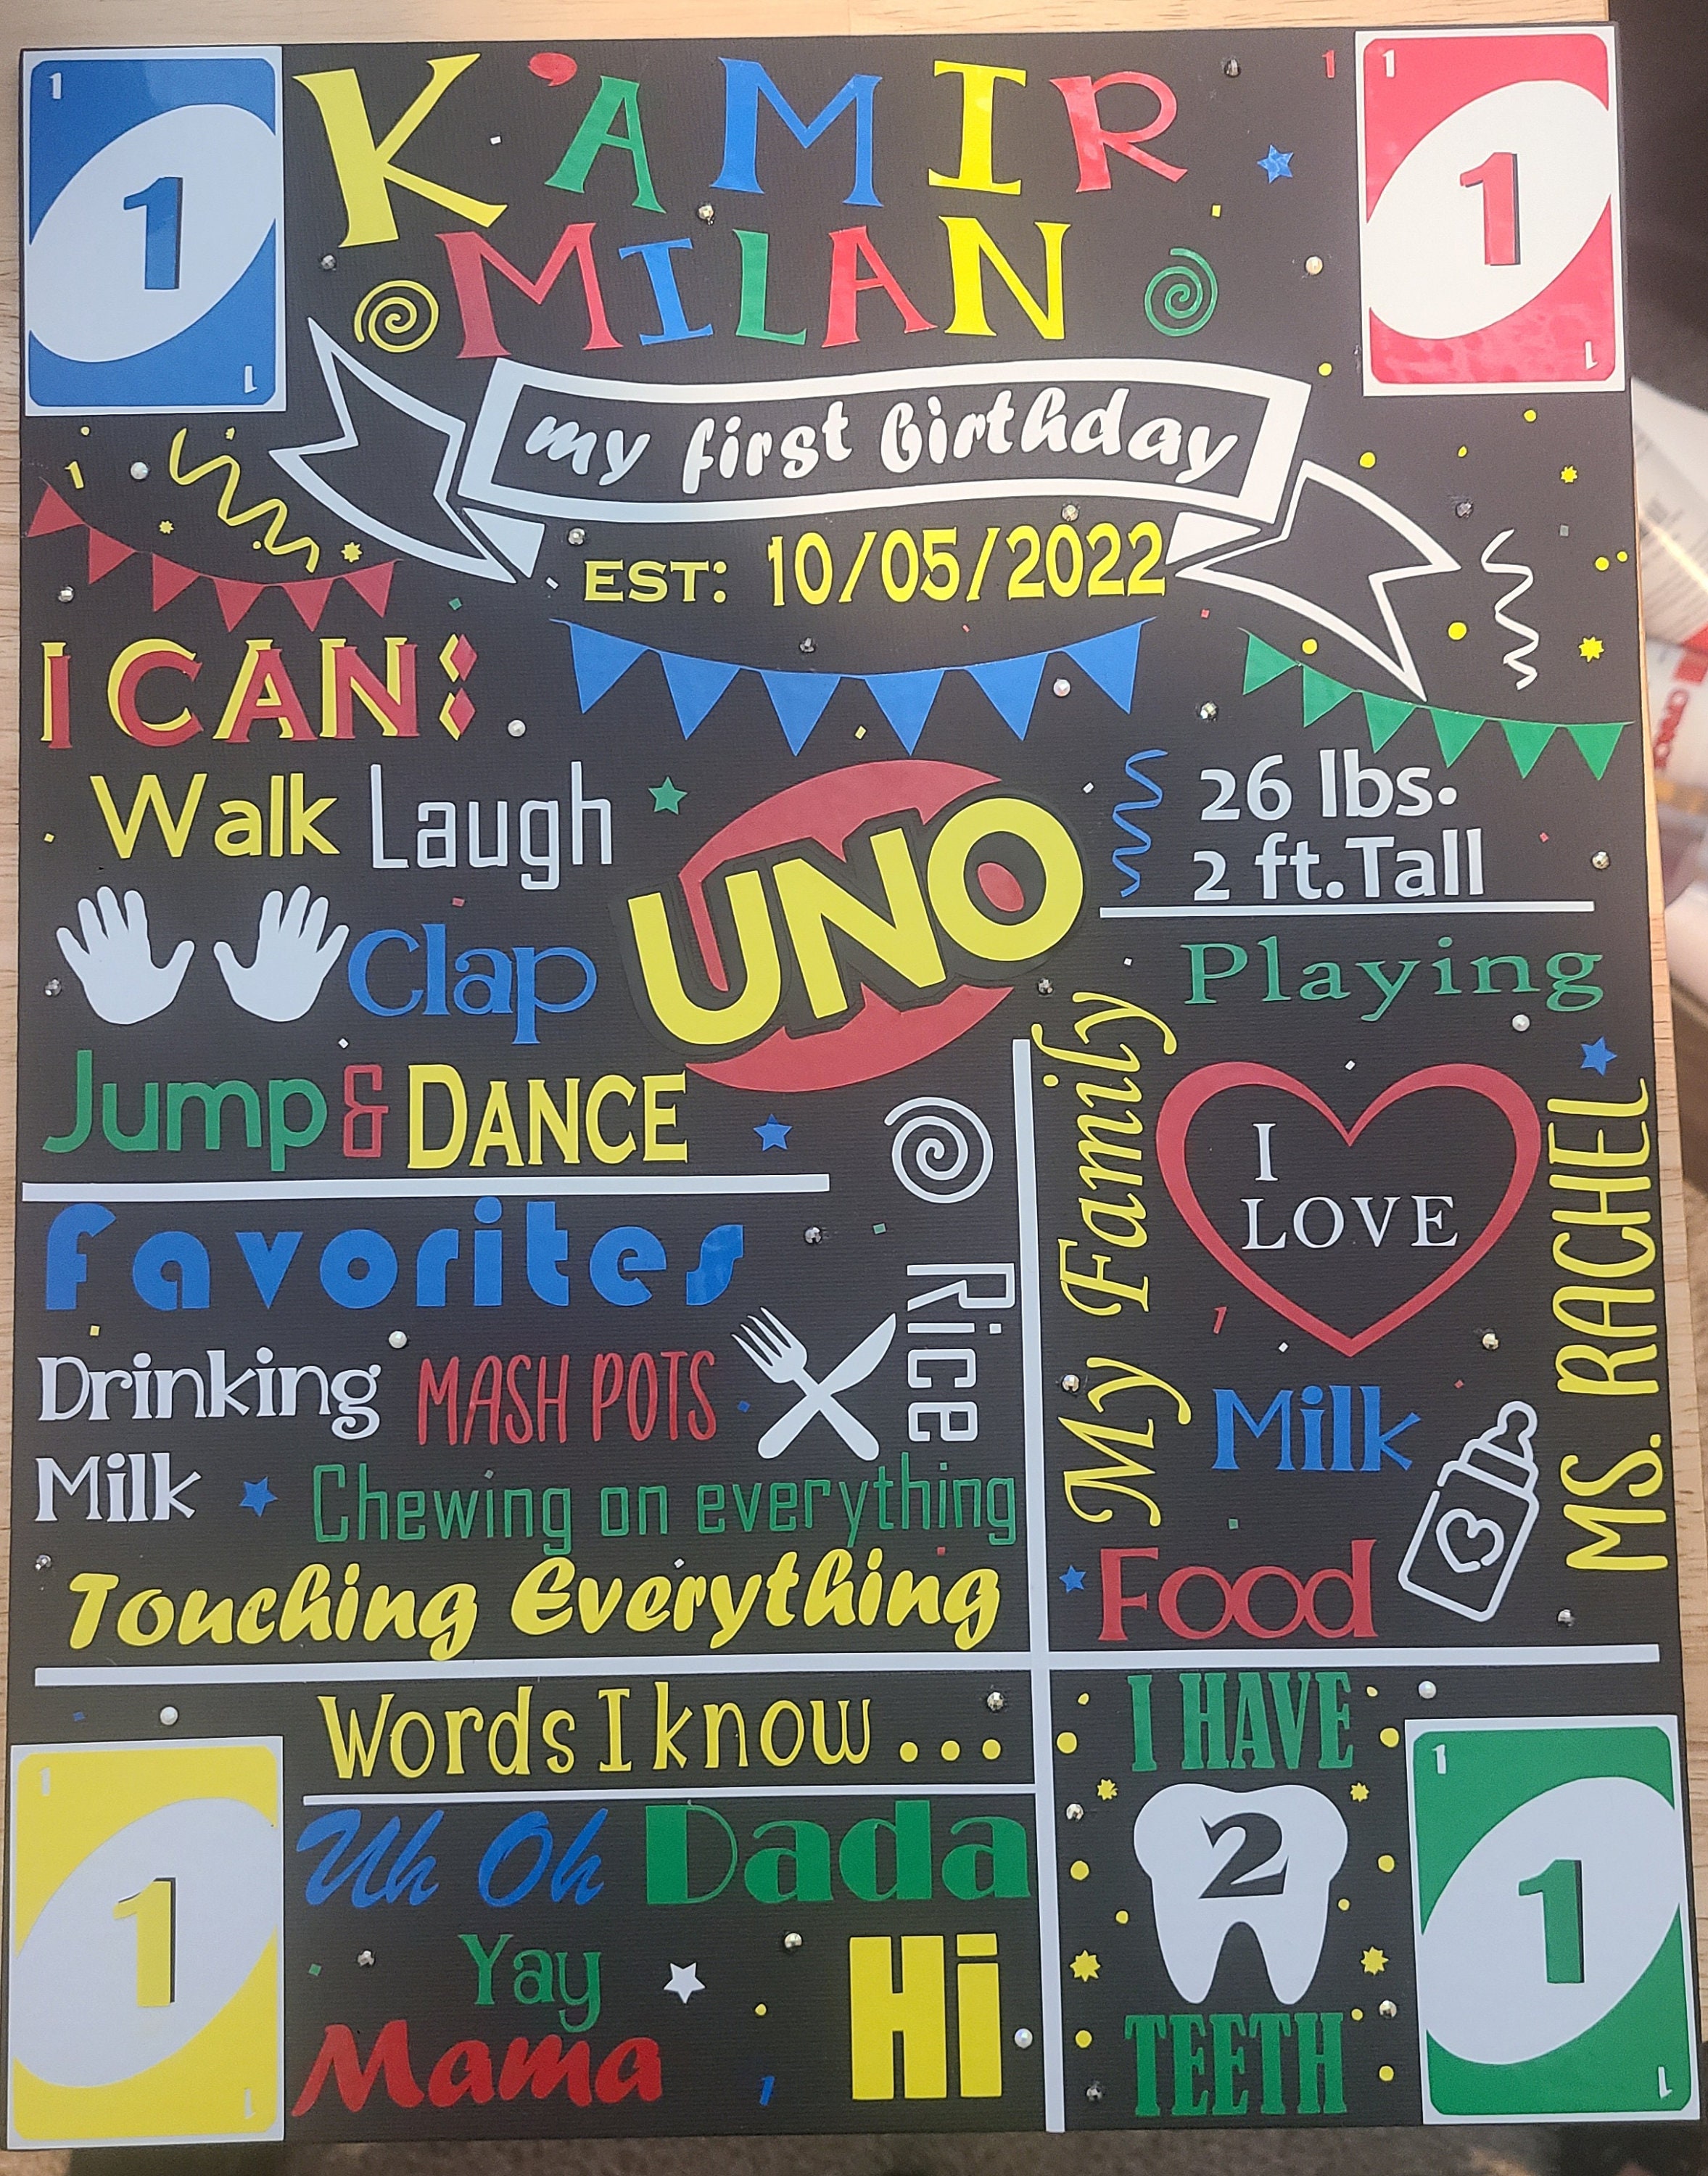 1
1
1
K'AMIR
MILAN
1
1
1
1
my first birthday
1
EST: 10/05/2022
I CAN:
Walk Laugh
Clap
Jump & DANCE
UNO
26 lbs.
2 ft. Tall
Favorites
Drinking
Milk
MASH POTS
Rice
Chewing on everything
Touching Everything
I
LOVE
Playing
My Family
MS. RACHEL
1
Milk
Food
Words I know...
Uh Oh Dada
Yay
Mama
Hi
1
I HAVE
2
TEETH
1
1
1
1
1
1